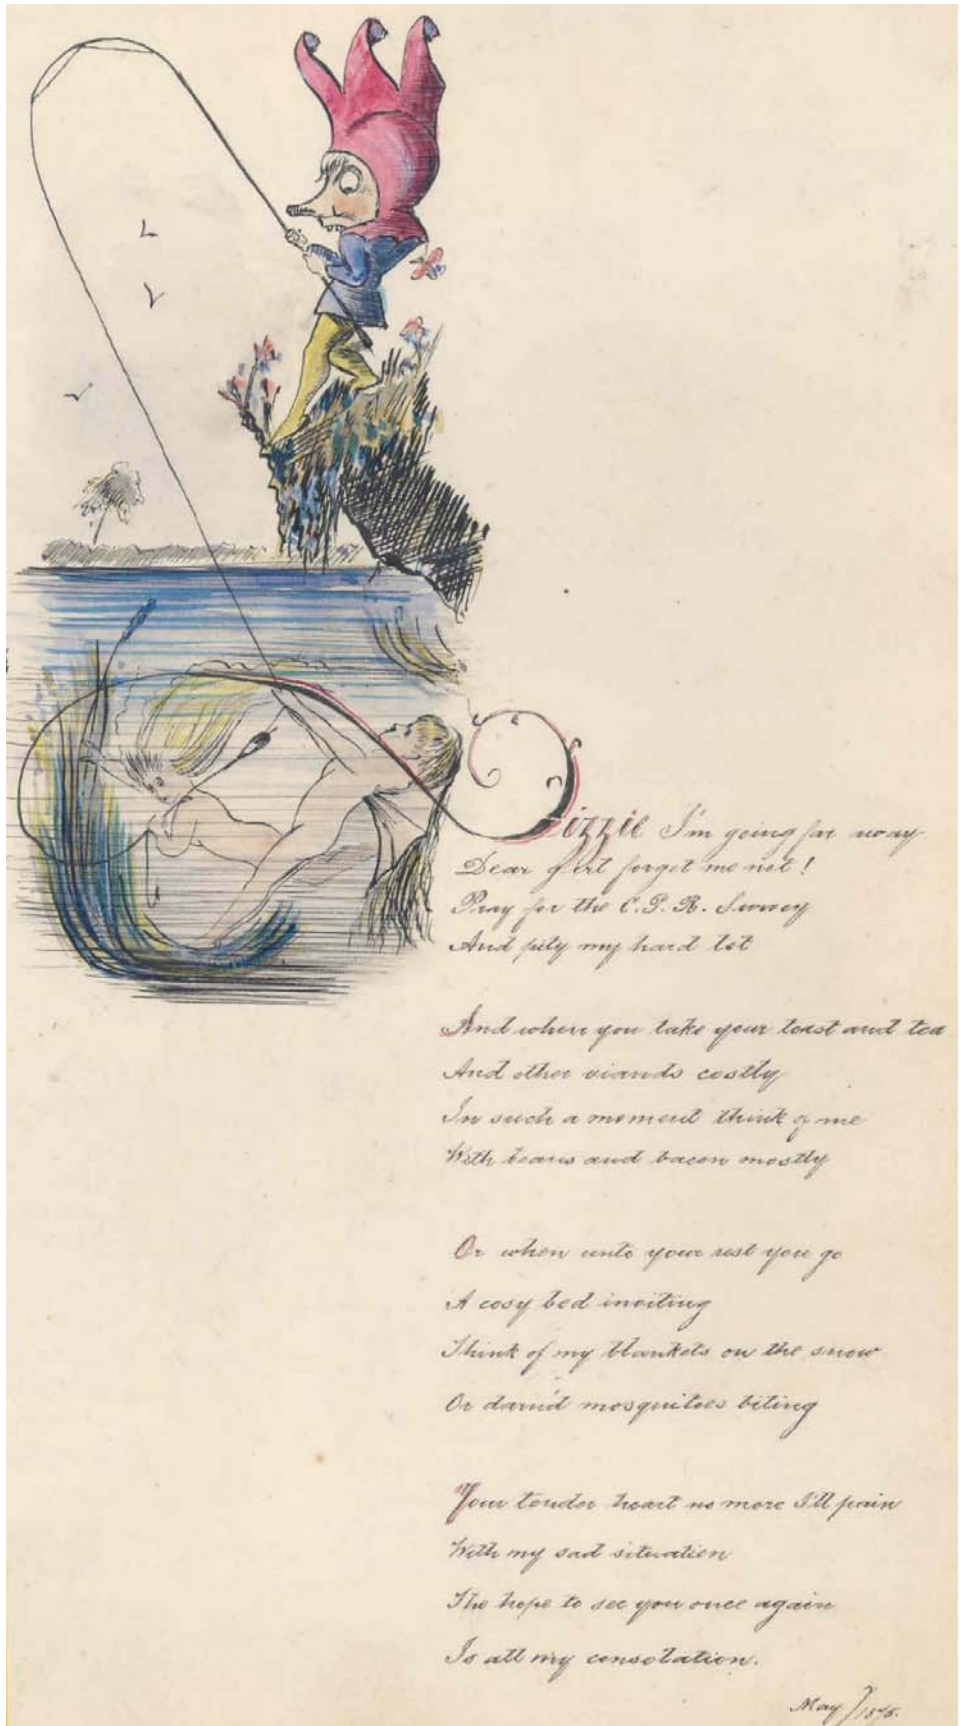 Lizzie I'm going far away
Dear girl forget me not!
Pray for the C.P.R. Survey
And pity my hard lot
And when you take your toast and tea
And other viands costly
In such a moment think of me
With beans and bacon mostly
Or when unto your rest you go
A cosy bed inviting
Think of my blankets on the snow
Or darn'd mosquitoes biting
Your tender heart no more I'll pain
With my sad situation
The hope to see you once again
Is all my consolation.
May 1875.